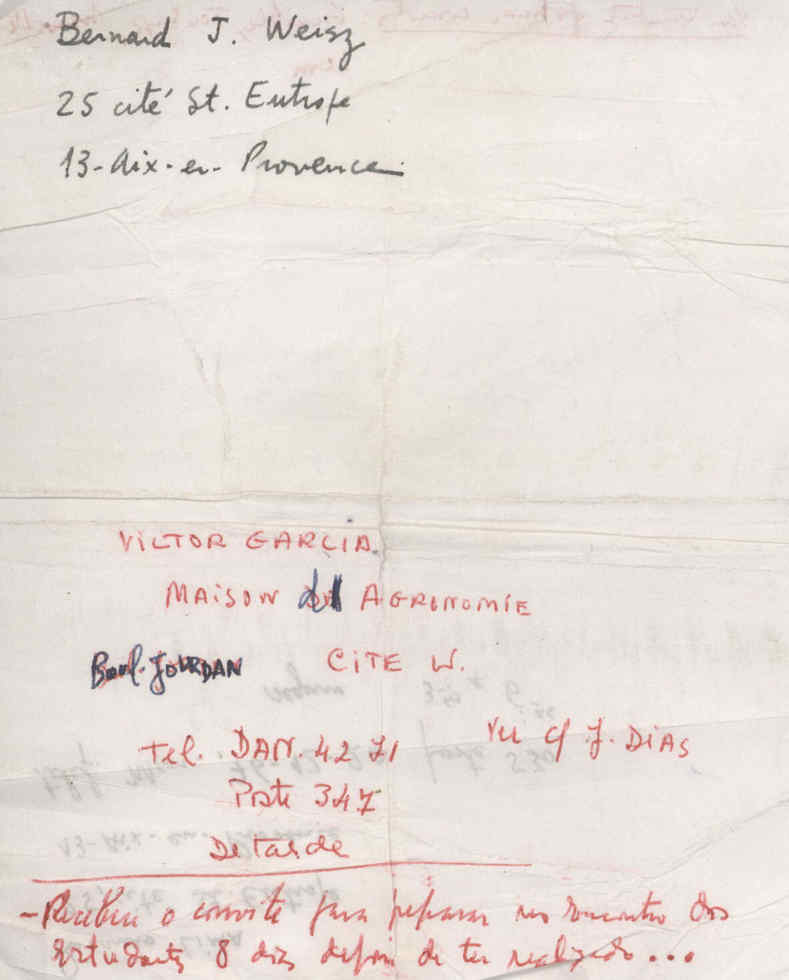 Bernard J. Weisz
25 cité St. Eutrope
13-Aix-en-Provence
VICTOR GARCIA.
MAISON AGRONOMIE
Boul. JOURDAN CITE W.
Tel. DAN. 42 71 Ver c/ J. DIAS
Poste 347
De tarde
- Recebeu o convite para preparar encontro dos
estudantes 8 dias depois de ter realizado...